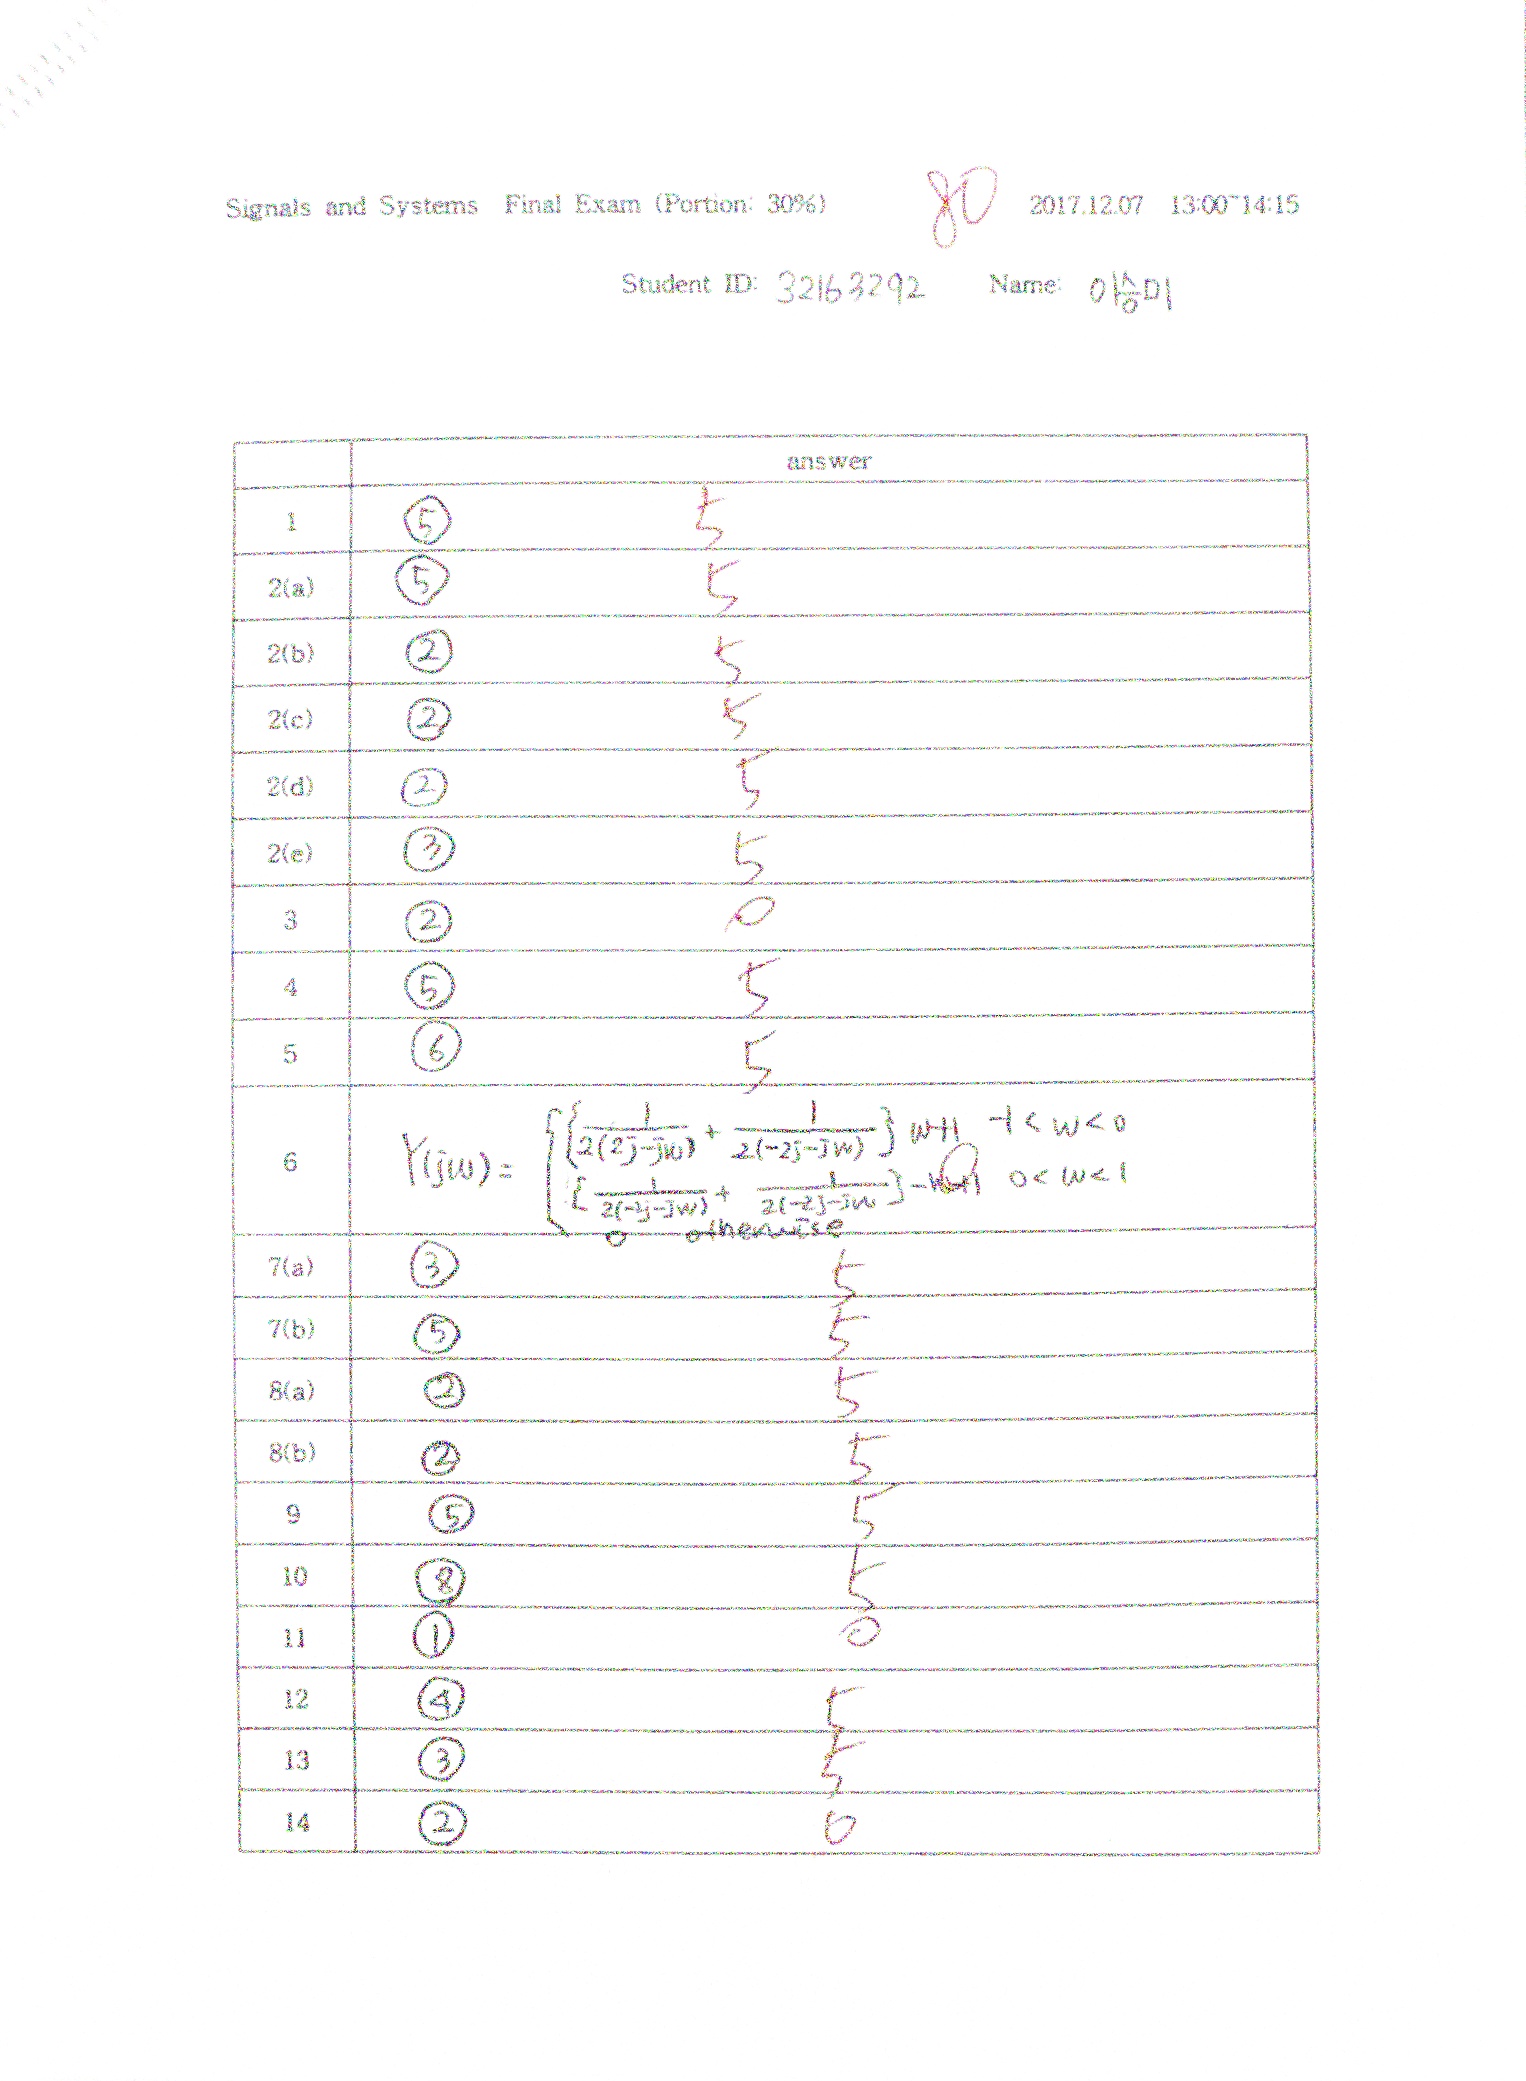 Signals and Systems Final Exam (Portion: 30%) 80 2017.12.07 13:00~14:15
Student ID: 32163292 Name: 이승미
answer
1 ⑤ 5
2(a) ⑤ 5
2(b) ② 5
2(c) ② 5
2(d) ② 5
2(e) ③ 5
3 ② 0
4 ⑤ 5
5 ⑥ 5
6 Y(jw) = { { 1/2(2j-jw) + 1/2(-2j-jw) } w+1 -1<w<0
{ 1/2(-2j-jw) + 1/2(-2j-jw } -w+1 0<w<1
0 otherwise
7(a) ③ 5
7(b) ⑤ 5
8(a) ② 5
8(b) ② 5
9 ⑤ 5
10 ⑧ 5
11 ① 0
12 ④ 5
13 ③ 5
14 ② 0